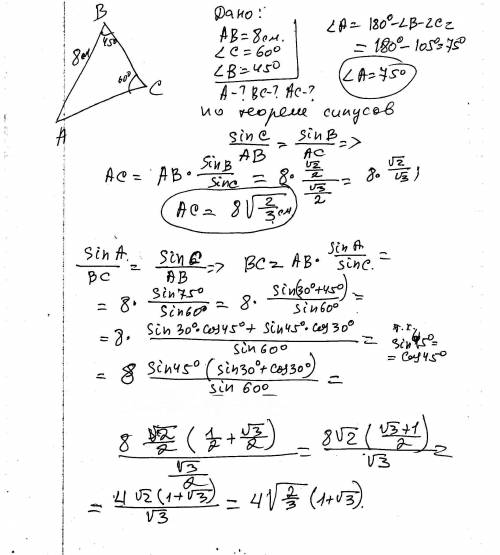 B
45°
8см
60°
C
A
Дано:
AB = 8см.
∠C = 60°
∠B = 45°
A-? BC-? AC-?
∠A = 180° - ∠B - ∠C =
= 180° - 105° = 75°
∠A = 75°
по теореме синусов
sin C / AB = sin B / AC =>
AC = AB · sin B / sin C = 8 · (√2/2) / (√3/2) = 8 · √2/√3;
AC = 8√(2/3) см
sin A / BC = sin C / AB => BC = AB · sin A / sin C =
= 8 · sin 75° / sin 60° = 8 · sin(30° + 45°) / sin 60° =
= 8 · (sin 30° · cos 45° + sin 45° · cos 30°) / sin 60° =
т.к.
sin 45° =
= cos 45°
= 8 sin 45° (sin 30° + cos 30°) / sin 60° =
8 √2/2 (1/2 + √3/2) / (√3/2) = 8√2 ((√3+1)/2) / √3 =
= 4√2 (1+√3) / √3 = 4√(2/3) (1+√3).